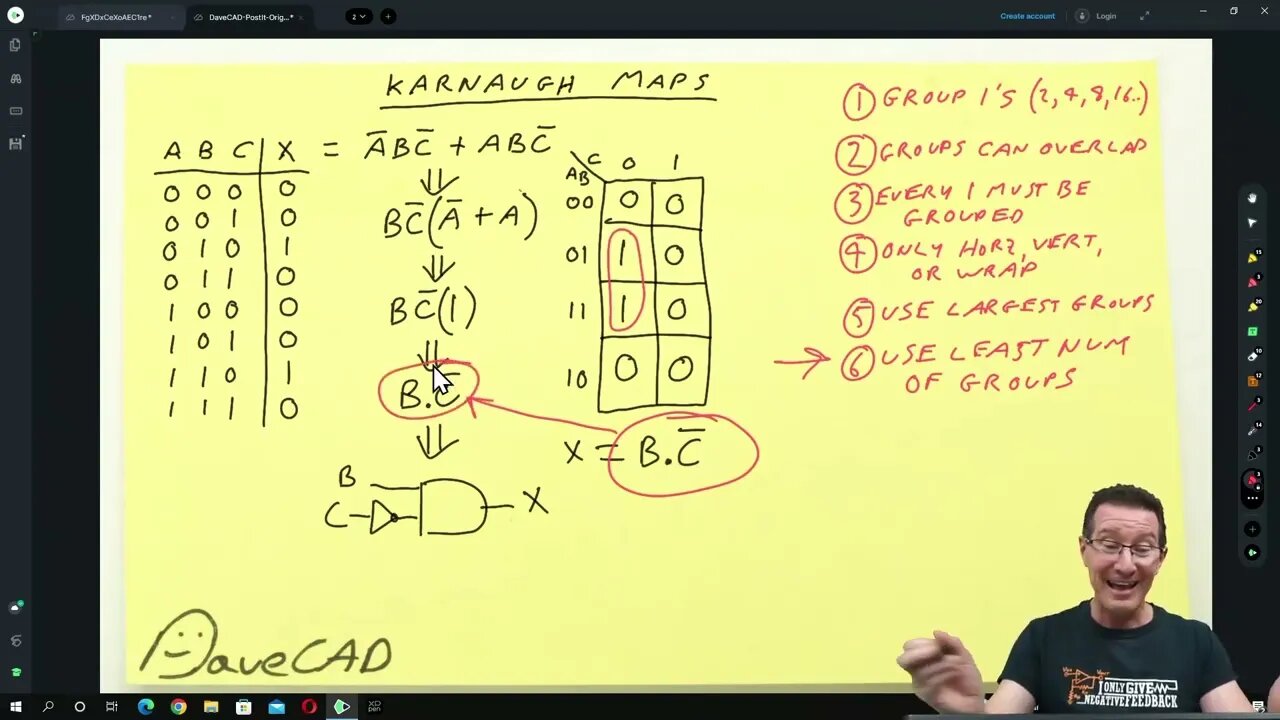 FgXDxCeXoAEC1re*
DaveCAD-PostIt-Orig...*
2
Create account
Login
KARNAUGH MAPS
A B C X = A̅BC̅ + ABC̅
0 0 0 0
0 0 1 0
0 1 0 1
0 1 1 0
1 0 0 0
1 0 1 0
1 1 0 1
1 1 1 0
BC̅(A̅ + A)
BC̅(1)
B.C̅
B
C
X
C 0 1
AB
00 0 0
01 1 0
11 1 0
10 0 0
X = B.C̅
1 GROUP 1'S (2, 4, 8, 16..)
2 GROUPS CAN OVERLAP
3 EVERY 1 MUST BE
GROUPED
4 ONLY HORZ, VERT,
OR WRAP
5 USE LARGEST GROUPS
6 USE LEAST NUM
OF GROUPS
DaveCAD
I ONLY GIVE
NEGATIVE FEEDBACK
XD
pen